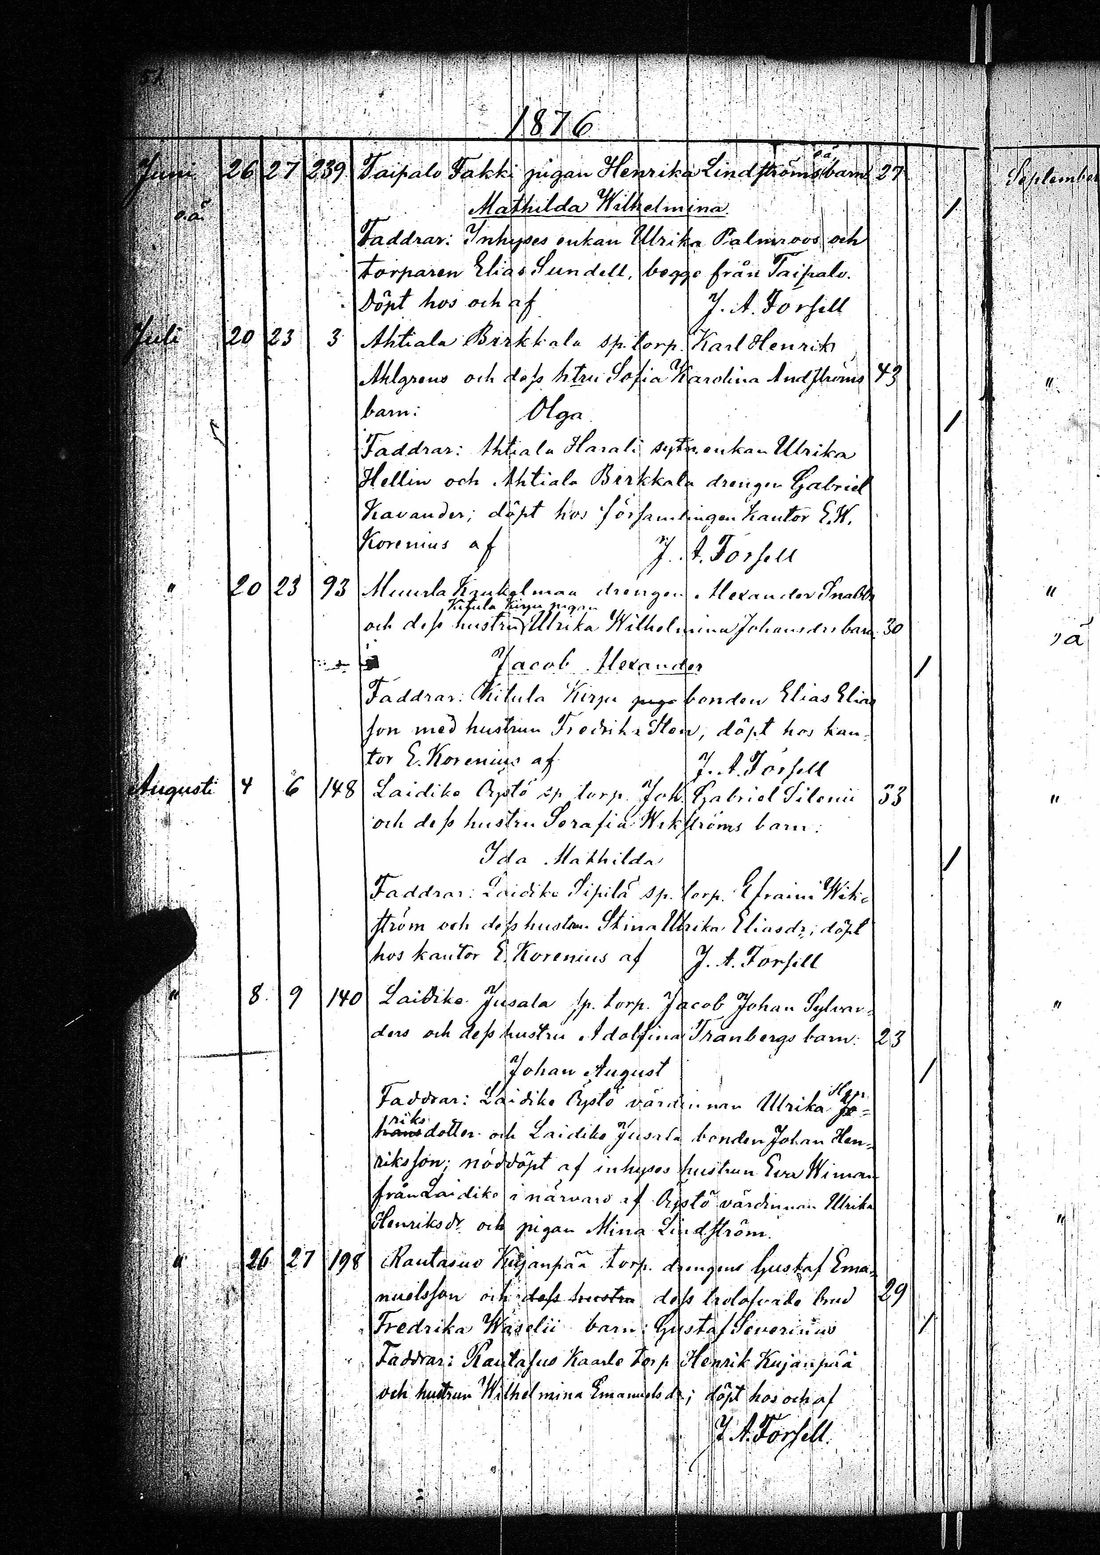 1876
Juni 26 27 239 Taipale Fakki pigan Henrika Lindströms oä barn 27
o.ä. Mathilda Wilhelmina
Faddrar: Inhyses enkan Ulrika Palmroos och
torparen Elias Sundell, begge från Taipale.
Döpt hos och af J. A. Forsell
Juli 20 23 3 Ahtiala Birkkala sp. torp. Karl Henrik
Ahlgrens och dess htru Sofia Karolina Andströms 43
barn: Olga
Faddrar: Ahtiala Harali sytn. enkan Ulrika
Hellin och Ahtiala Birkkala drengen Gabriel
Kavander; döpt hos församlingen kantor E.W.
Korenius af J. A. Forsell
" 20 23 93 drengen Alexander Snabb
Kitula Kirpu pigan
och dess hustru Ulrika Wilhelmina Johansdrs barn 30
Jacob Alexander
Faddrar: Kitula Kirpu bonden Elias Elias
son med hustrun Fredrika Sten, döpt hos kan-
tor E. Korenius af J. A. Forsell
Augusti 4 6 148 Laidike Rystö sp. torp. Joh. Gabriel Silenii 33
och dess hustru Serafia Wikströms barn:
Ida Mathilda
Faddrar: Laidike Sipilä sp. torp. Efraim Wik-
ström och dess hustru Stina Ulrika Eliasdr; döpt
hos kantor E. Korenius af J. A. Forsell
" 8 9 140 Laidike Jusala sp. torp. Jacob Johan Sylvan-
ders och dess hustru Adolfina Tranbergs barn: 23
Johan August
Faddrar: Laidike Rystö värdinnan Ulrika Hen
riks
dotter och Laidike Jusala bonden Johan Hen-
riksson; nöddöpt af inhyses hustrun Eva Wiman
från Laidike i närvaro af Rystö värdinnan Ulrika
Henriksdr och pigan Mina Lindström.
" 26 27 198 Rautasuo Kujanpää torp. drengens Gustaf Ema-
nuelsson och dess hustru dess trolofvade Brud 29
Fredrika Waselii barn: Gustaf Severinus
Faddrar: Rautasuo Kaarlo torp Henrik Kujanpää
och hustrun Wilhelmina Emanuelsdr; döpt hos och af
J. A. Forsell.
September
"
"
oä
"
"
"